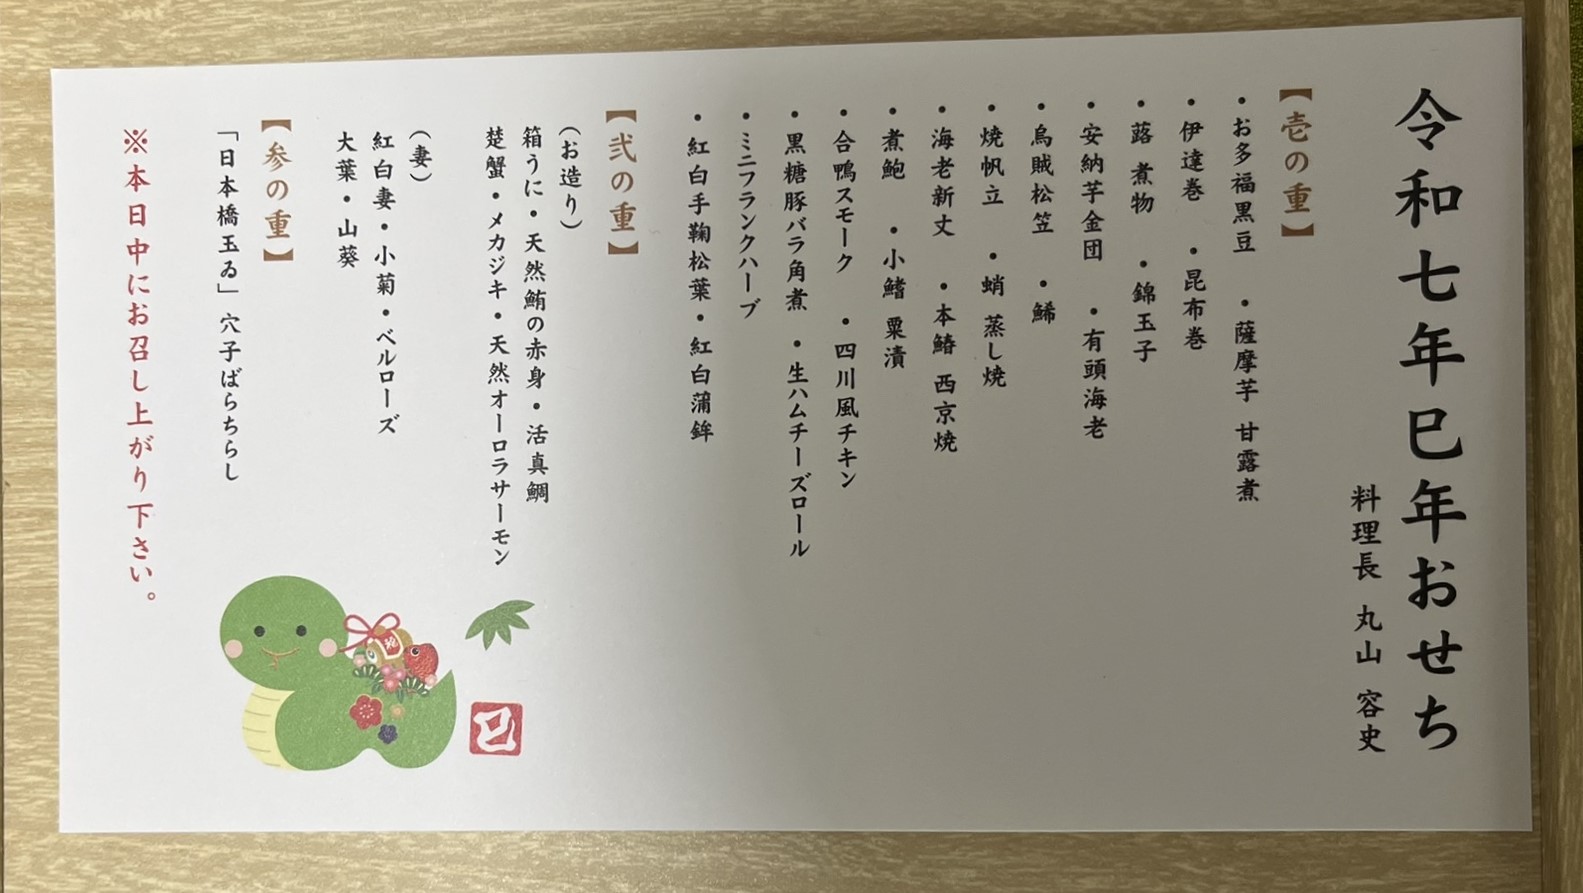 令和七年巳年おせち
料理長 丸山 容史
【壱の重】
・お多福黒豆 ・薩摩芋 甘露煮
・伊達巻 ・昆布巻
・蕗 煮物 ・錦玉子
・安納芋金団 ・有頭海老
・烏賊松笠 ・鯑
・焼帆立 ・蛸 蒸し焼
・海老新丈 ・本鰆 西京焼
・煮鮑 ・小鰭 粟漬
・合鴨スモーク ・四川風チキン
・黒糖豚バラ角煮 ・生ハムチーズロール
・ミニフランクハーブ
・紅白手鞠松葉・紅白蒲鉾
【弐の重】
(お造り)
箱うに・天然鮪の赤身・活真鯛
楚蟹・メカジキ・天然オーロラサーモン
(妻)
紅白妻・小菊・ベルローズ
大葉・山葵
【参の重】
「日本橋玉ゐ」穴子ばらちらし
※本日中にお召し上がり下さい。
巳